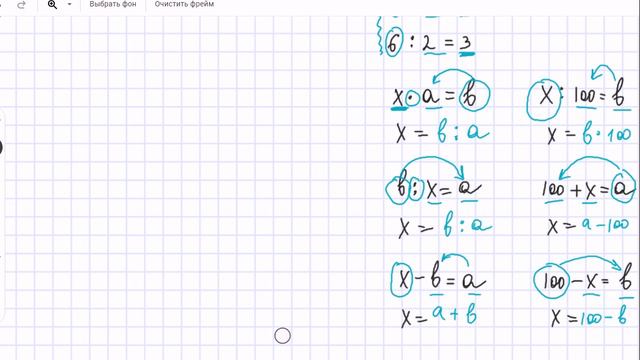 Выбрать фон Очистить фрейм
6 : 2 = 3
x · a = b
x = b : a
b : x = a
x = b : a
x - b = a
x = a + b
x : 100 = b
x = b · 100
100 + x = a
x = a - 100
100 - x = b
x = 100 - b